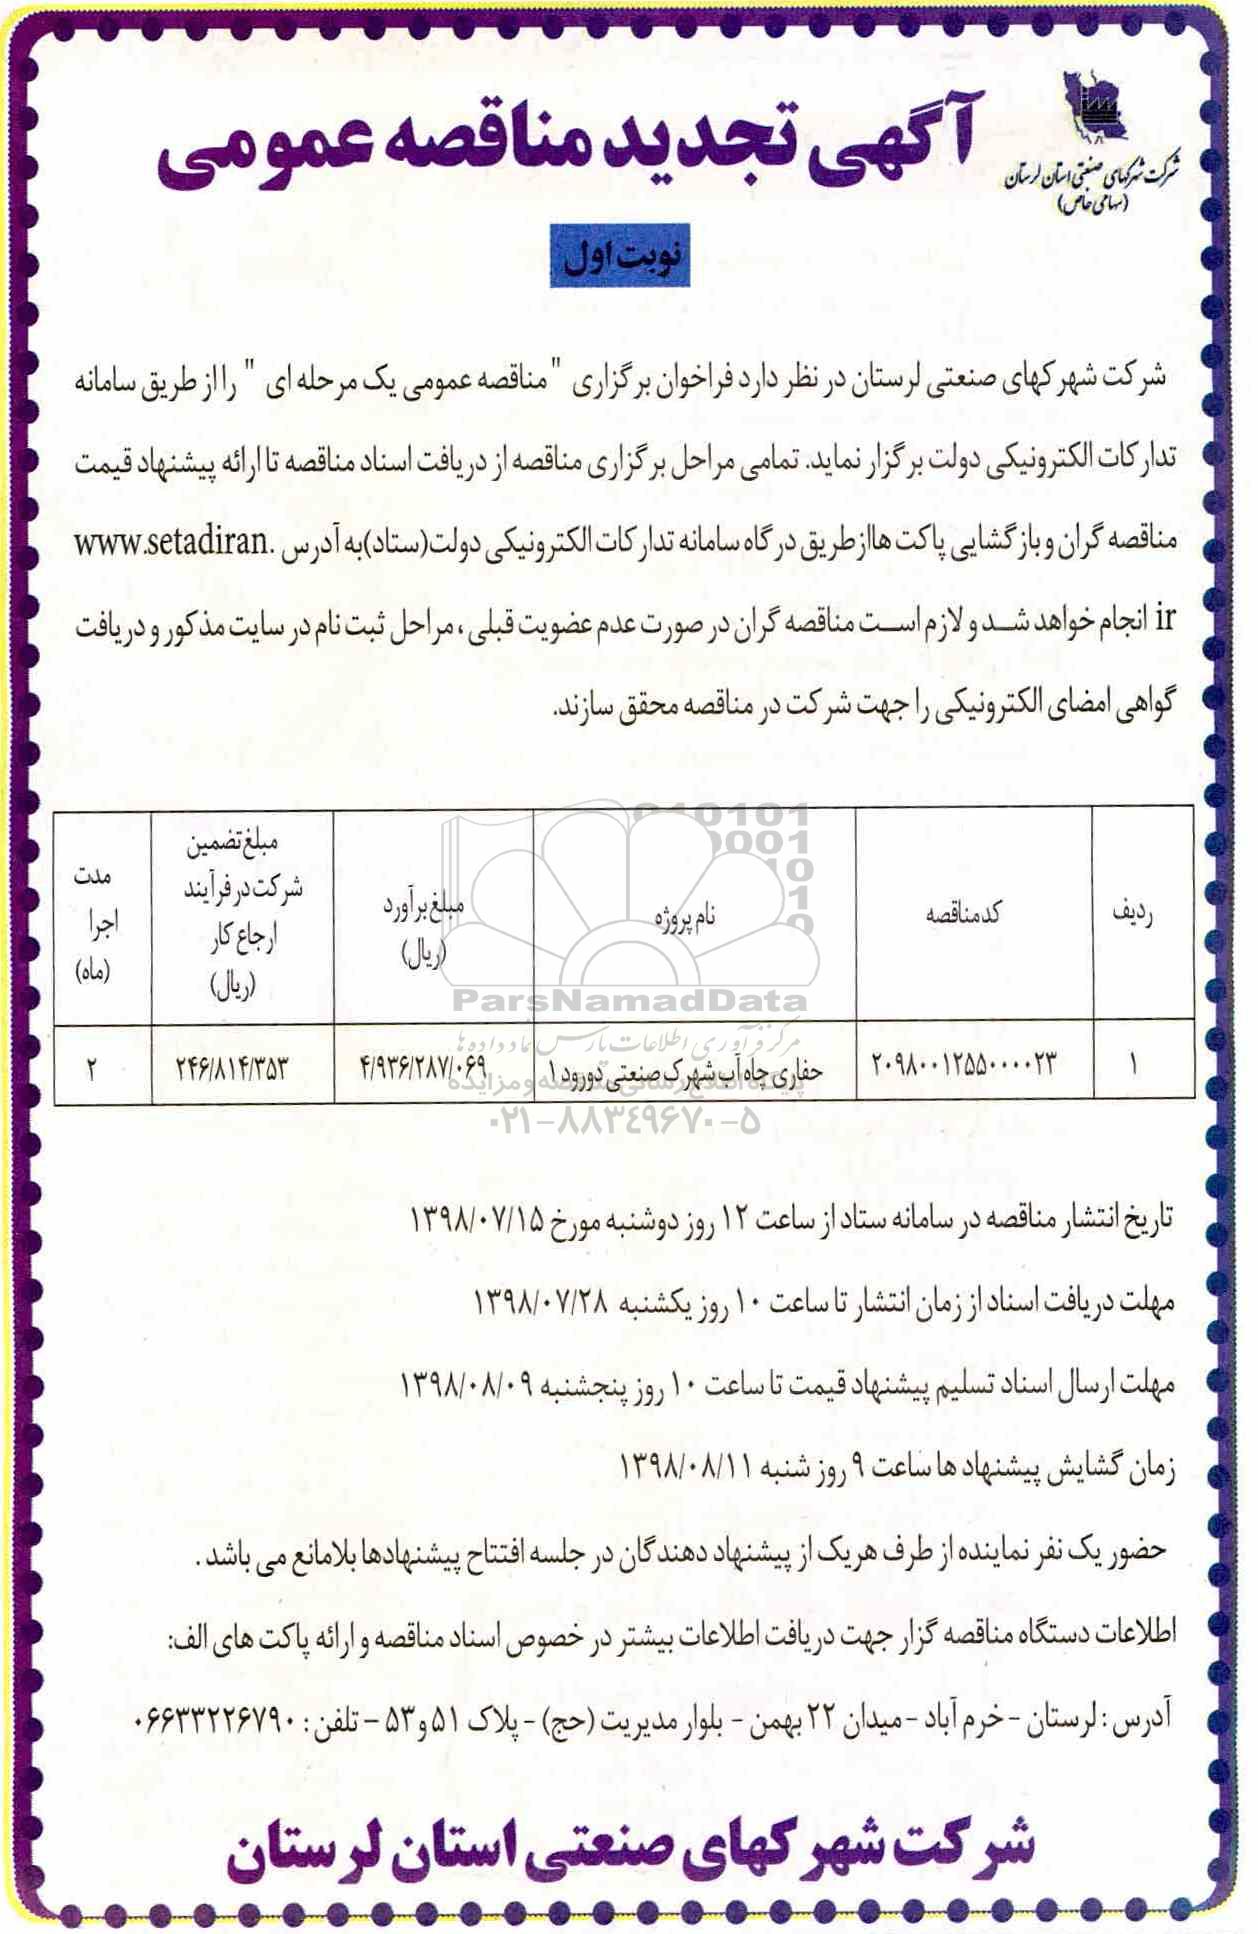 شرکت شهرکهای صنعتی استان لرستان
(سهامی خاص)
آگهی تجدید مناقصه عمومی
نوبت اول
شرکت شهرکهای صنعتی لرستان در نظر دارد فراخوان برگزاری "مناقصه عمومی یک مرحله ای " را از طریق سامانه
تدارکات الکترونیکی دولت برگزار نماید. تمامی مراحل برگزاری مناقصه از دریافت اسناد مناقصه تا ارائه پیشنهاد قیمت
مناقصه گران و بازگشایی پاکت هااز طریق درگاه سامانه تدارکات الکترونیکی دولت(ستاد)به آدرس www.setadiran.
ir انجام خواهد شد و لازم است مناقصه گران در صورت عدم عضویت قبلی، مراحل ثبت نام در سایت مذکور و دریافت
گواهی امضای الکترونیکی را جهت شرکت در مناقصه محقق سازند.
ردیف | کد مناقصه | نام پروژه | مبلغ برآورد (ریال) | مبلغ تضمین شرکت در فرآیند ارجاع کار (ریال) | مدت اجرا (ماه)
۱ | ۲۰۹۸۰۰۱۲۵۵۰۰۰۰۲۳ | حفاری چاه آب شهرک صنعتی دورود ۱ | ۴/۹۳۶/۲۸۷/۰۶۹ | ۲۴۶/۸۱۴/۳۵۳ | ۲
ParsNamadData
مرکز فرآوری اطلاعات پارس نماد داده ها
۰۲۱-۸۸۳۴۹۶۷۰-۵
تاریخ انتشار مناقصه در سامانه ستاد از ساعت ۱۲ روز دوشنبه مورخ ۱۳۹۸/۰۷/۱۵
مهلت دریافت اسناد از زمان انتشار تا ساعت ۱۰ روز یکشنبه ۱۳۹۸/۰۷/۲۸
مهلت ارسال اسناد تسلیم پیشنهاد قیمت تا ساعت ۱۰ روز پنجشنبه ۱۳۹۸/۰۸/۰۹
زمان گشایش پیشنهاد ها ساعت ۹ روز شنبه ۱۳۹۸/۰۸/۱۱
حضور یک نفر نماینده از طرف هریک از پیشنهاد دهندگان در جلسه افتتاح پیشنهادها بلامانع می باشد .
اطلاعات دستگاه مناقصه گزار جهت دریافت اطلاعات بیشتر در خصوص اسناد مناقصه و ارائه پاکت های الف:
آدرس : لرستان - خرم آباد - میدان ۲۲ بهمن - بلوار مدیریت (حج) - پلاک ۵۱ و ۵۳ – تلفن : ۰۶۶۳۳۲۲۶۷۹۰
شرکت شهرکهای صنعتی استان لرستان